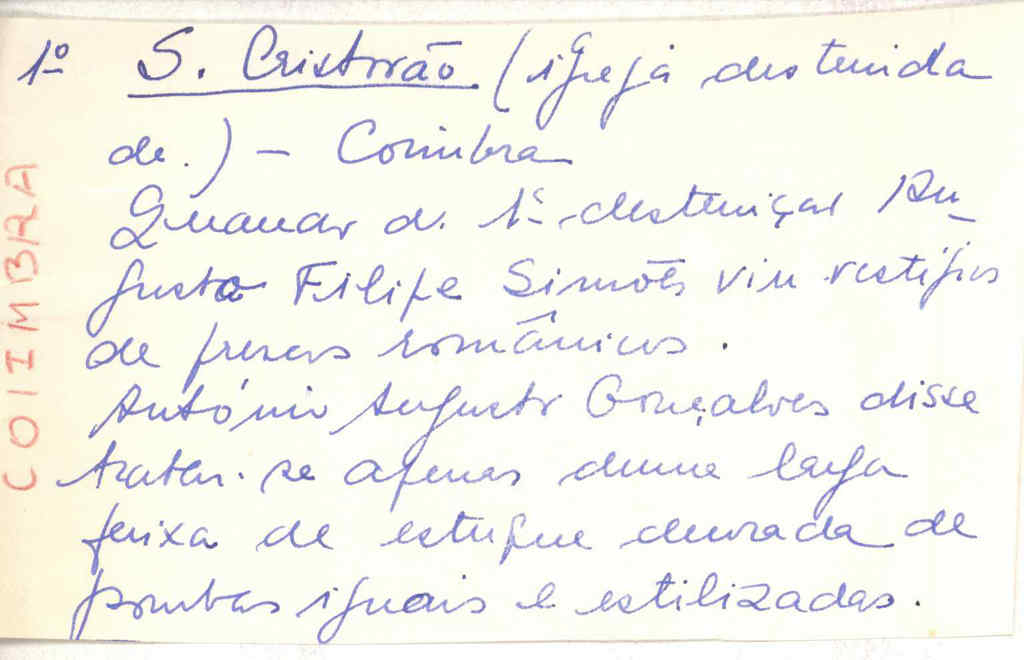 1º S. Cristovão (igreja destruida
de.) – Coimbra
Quando da destruiçao Au-
gusto Filipe Simões viu vestigios
de frescos românicos.
António Augusto Gonçalves disse
tratar-se apenas duma larga
faixa de estuque dourada de
pombas iguais e estilizadas.
COIMBRA